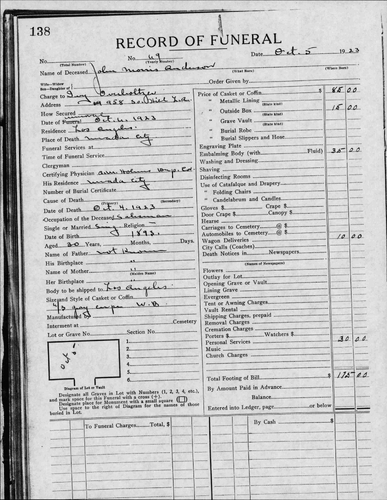 138
RECORD OF FUNERAL
No. 49 Date Oct. 5 1923
(Total Number) (Yearly Number)
Name of Deceased John Morris Anderson
Wife—Widow
Son—Daughter of
Charge to Guy Overholtzer
Order Given by
Address
How Secured
Date of Funeral Oct. 4, 1923
Residence Los Angeles
Place of Death Nevada City
Funeral Services at
Time of Funeral Service
Clergyman
Certifying Physician
His Residence Nevada City
Number of Burial Certificate
Cause of Death
(Primary)
Date of Death Oct. 4, 1923
Occupation of the Deceased Salesman
Single or Married Sing Religion
Date of Birth 1893
Aged 30 Years, Months, Days.
Name of Father not Known
His Birthplace "
Name of Mother "
(Maiden Name)
Her Birthplace "
Body to be shipped to Los Angeles
Size and Style of Casket or Coffin
W.B.
Manufactured by
Interment at Cemetery
Lot or Grave No. Section No.
1.
2.
3.
4.
5.
6.
Diagram of Lot or Vault
Designate all Graves in Lot with Numbers (1, 2, 3, 4, etc.),
and mark space for this Funeral with a cross (+).
Designate place for Monument with a small square
Use space to the right of Diagram for the names of those
buried in Lot.
Price of Casket or Coffin $ 85 00
" Metallic Lining
(State Kind)
" Outside Box 15 00
(State Kind)
" Grave Vault
(State Kind)
" Burial Robe
" Burial Slippers and Hose
Engraving Plate
Embalming Body (with Fluid) 35 00
Washing and Dressing
Shaving
Disinfecting Rooms
Use of Catafalque and Drapery
" Folding Chairs
" Candelabrum and Candles
Gloves $ Crape $
Door Crape $ Canopy $
Hearse
Carriages to Cemetery @ $
Automobiles to Cemetery @ $
Wagon Deliveries 10 00
City Calls (Coaches)
Death Notices in Newspapers
(Names of Newspapers)
Flowers
Outlay for Lot
Opening Grave or Vault
Lining Grave
Evergreen
Tent or Awning Charges
Vault Rental
Shipping Charges, prepaid
Removal Charges
Cremation Charges
Porters $ Watchers $
Personal Services 30 00
Music
Church Charges
Total Footing of Bill $ 175 00
By Amount Paid in Advance
Balance
Entered into Ledger, page or below
To Funeral Charges, Total, $
By Cash $